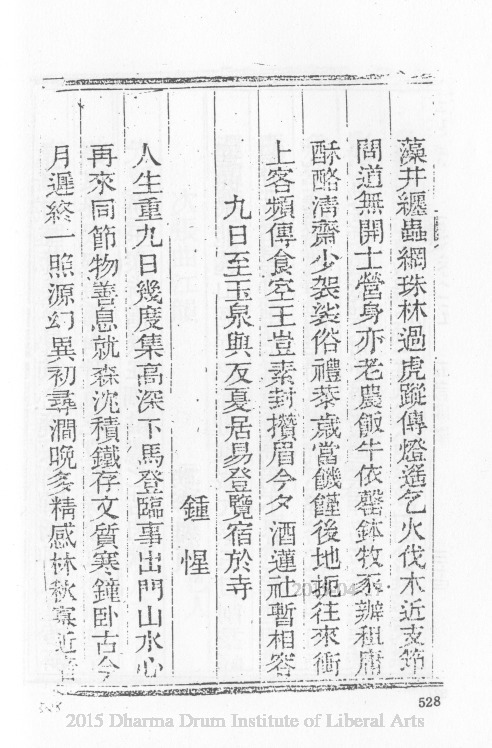 藻井纒蟲網珠林過虎蹤傳燈遙乞火伐木近支筇
問道無開士營身亦老農飯牛依罄鉢牧豕辦租庸
酥酪清齋少袈裟俗禮恭歲當饑饉後地扼往來衝
上客頻傳食空王豈素封攢眉今夕酒蓮社暫相容
九日至玉泉與友夏居易登覽宿於寺
鍾惺
人生重九日幾度集高深下馬登臨事出門山水心
再來同節物善息就森沈積鐵存文質寒鐘臥古今
月遲終一照源幻異初尋澗晚多精感林秋寡近音
528
528
2015 Dharma Drum Institute of Liberal Arts